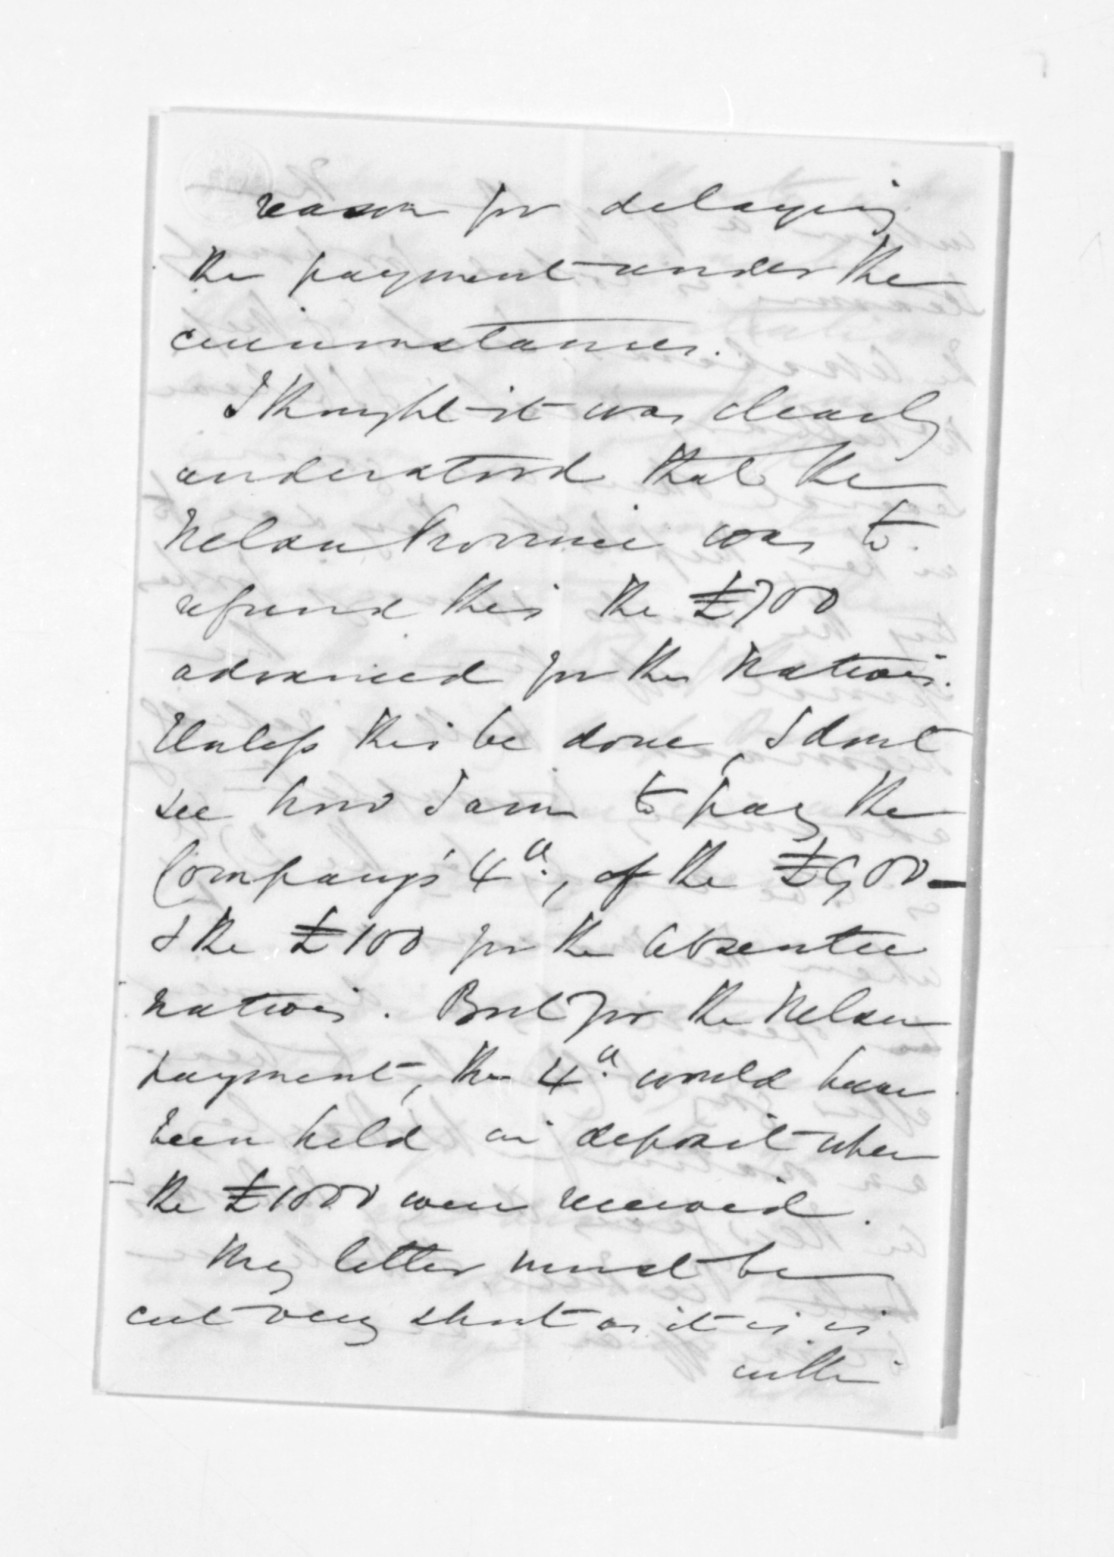 reason for delaying
the payment under the
circumstances.
I thought it was clearly
understood that the
Nelson Province was to
refund this the £700
advanced for the Natives.
Unless this be done, I dont
see how I am to pay the
Company's 4th, of the £900 —
& the £100 for the absentee
natives. But for the Nelson
payment, the 4th would have
been held in deposit when
the £1000 were received.
My letter must be
cut very short as it is is
within